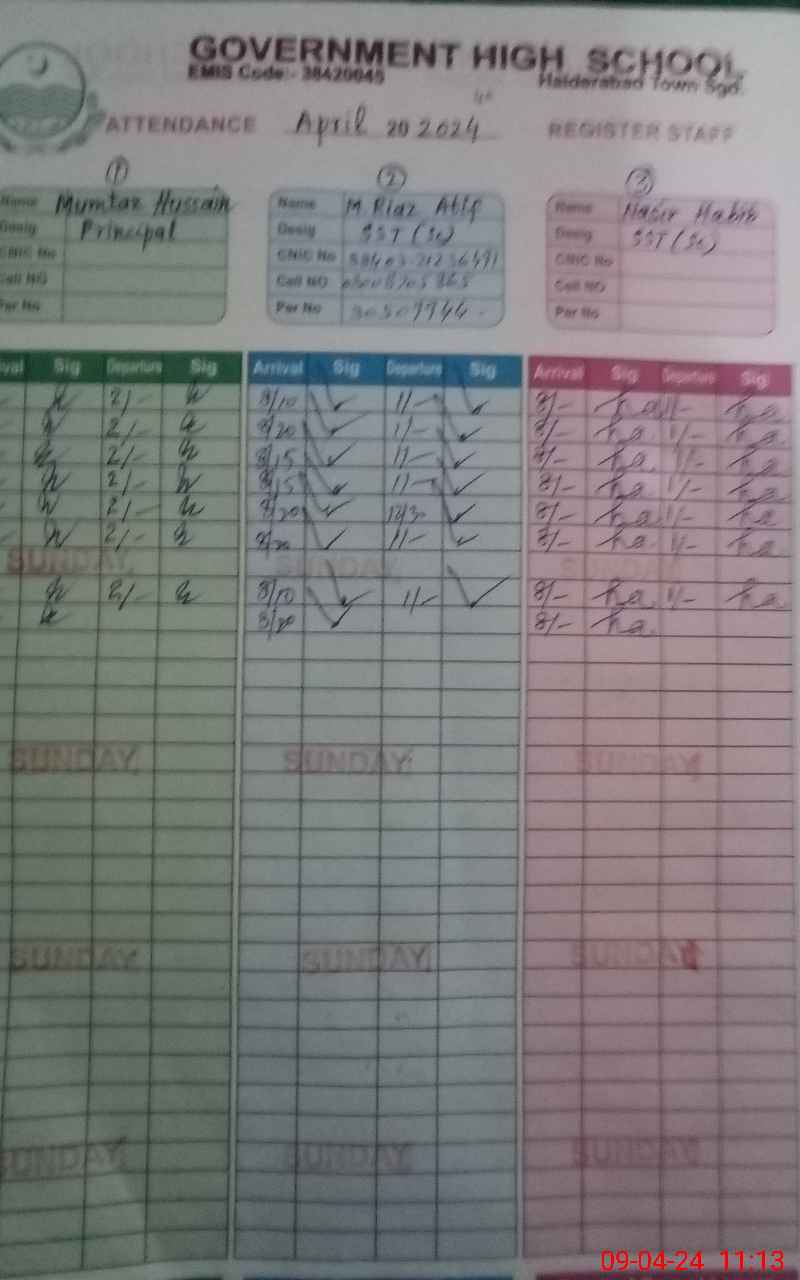 GOVERNMENT HIGH SCHOOL
EMIS Code:- 38420045 Haiderabad Town Sgd.
ATTENDANCE April 20 2024 REGISTER STAFF
(1) (2) (3)
Name Mumtaz Hussain Name M Riaz Atif Name Nasir Habib
Desig Principal Desig SST (Sc) Desig SST (Sc)
CNIC No CNIC No CNIC No
Cell NO Cell NO Cell NO
Per No Per No Per No
Sig Departure Sig Arrival Sig Departure Sig Arrival Sig Departure Sig
2/- 8/10 1/- 8/- ha 1/- ha
2/- 8/20 1/- 8/- ha 1/- ha
2/- 8/15 1/- 8/- ha 1/- ha
2/- 8/15 1/- 8/- ha 1/- ha
2/- 8/20 12/30 8/- ha 1/- ha
2/- 8/20 1/- 8/- ha 1/- ha
SUNDAY SUNDAY SUNDAY
2/- 8/10 1/- 8/- ha 1/- ha
8/20 8/- ha
SUNDAY SUNDAY SUNDAY
SUNDAY SUNDAY SUNDAY
SUNDAY SUNDAY SUNDAY
09-04-24 11:13